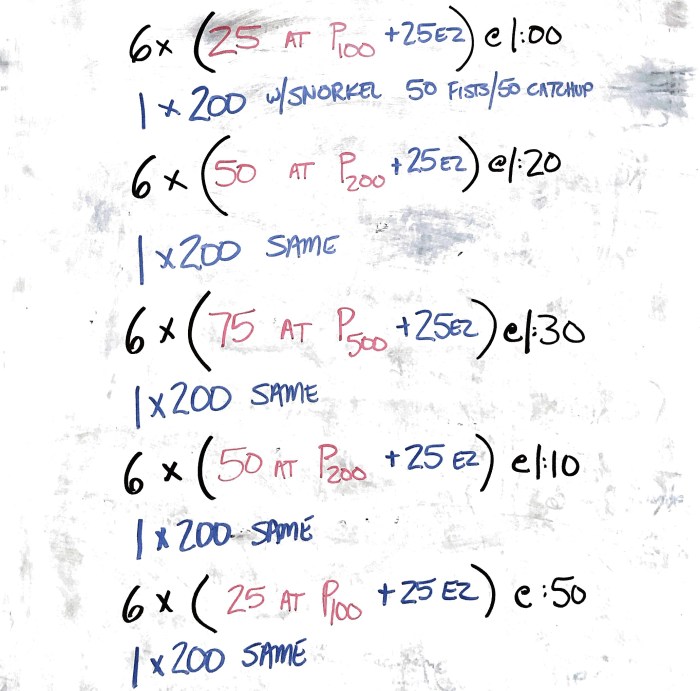 6x (25 AT P100 +25EZ) @ 1:00
1 x 200 w/SNORKEL 50 FISTS/50 CATCHUP
6 x (50 AT P200 +25EZ) @1:20
1 x 200 SAME
6 x (75 AT P500 +25EZ) @1:30
1 x 200 SAME
6 x (50 AT P200 +25 EZ) @1:10
1 x 200 SAME
6 x (25 AT P100 +25 EZ) @ :50
1 x 200 SAME